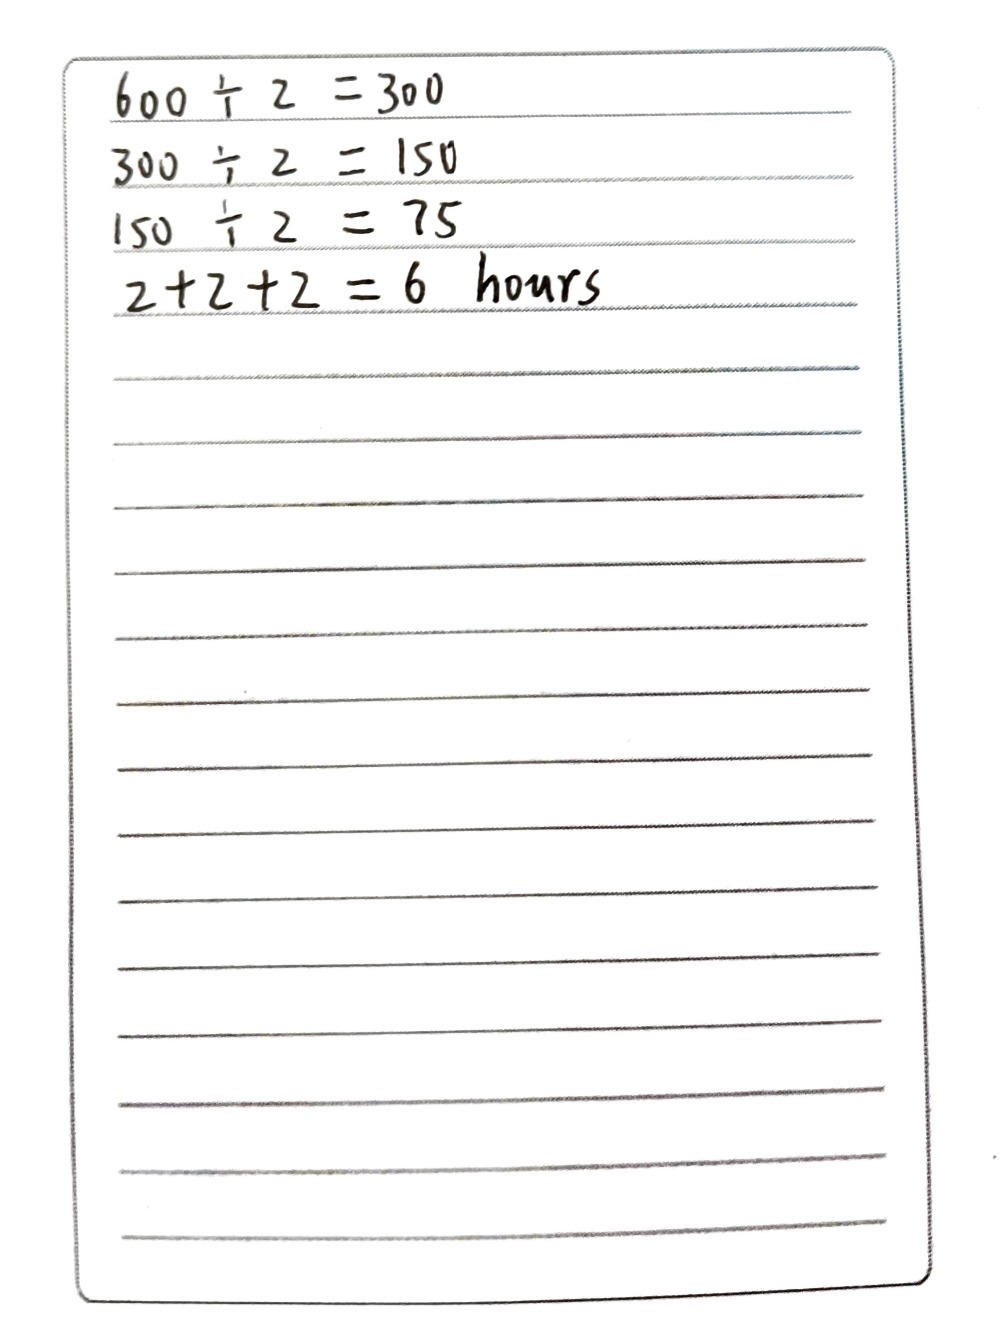 600 ÷ 2 = 300
300 ÷ 2 = 150
150 ÷ 2 = 75
2+2+2 = 6 hours